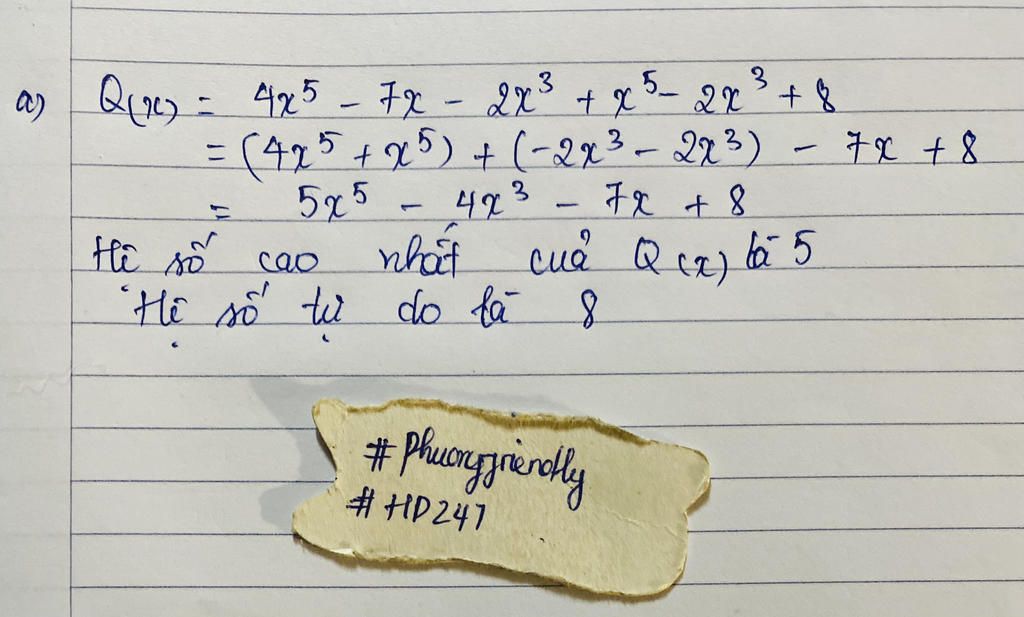 a) Q(x) = 4x⁵ - 7x - 2x³ + x⁵ - 2x³ + 8
= (4x⁵ + x⁵) + (-2x³ - 2x³) - 7x + 8
= 5x⁵ - 4x³ - 7x + 8
Hệ số cao nhất của Q(x) là 5
Hệ số tự do là 8
#Phuongfriendly
#HD247